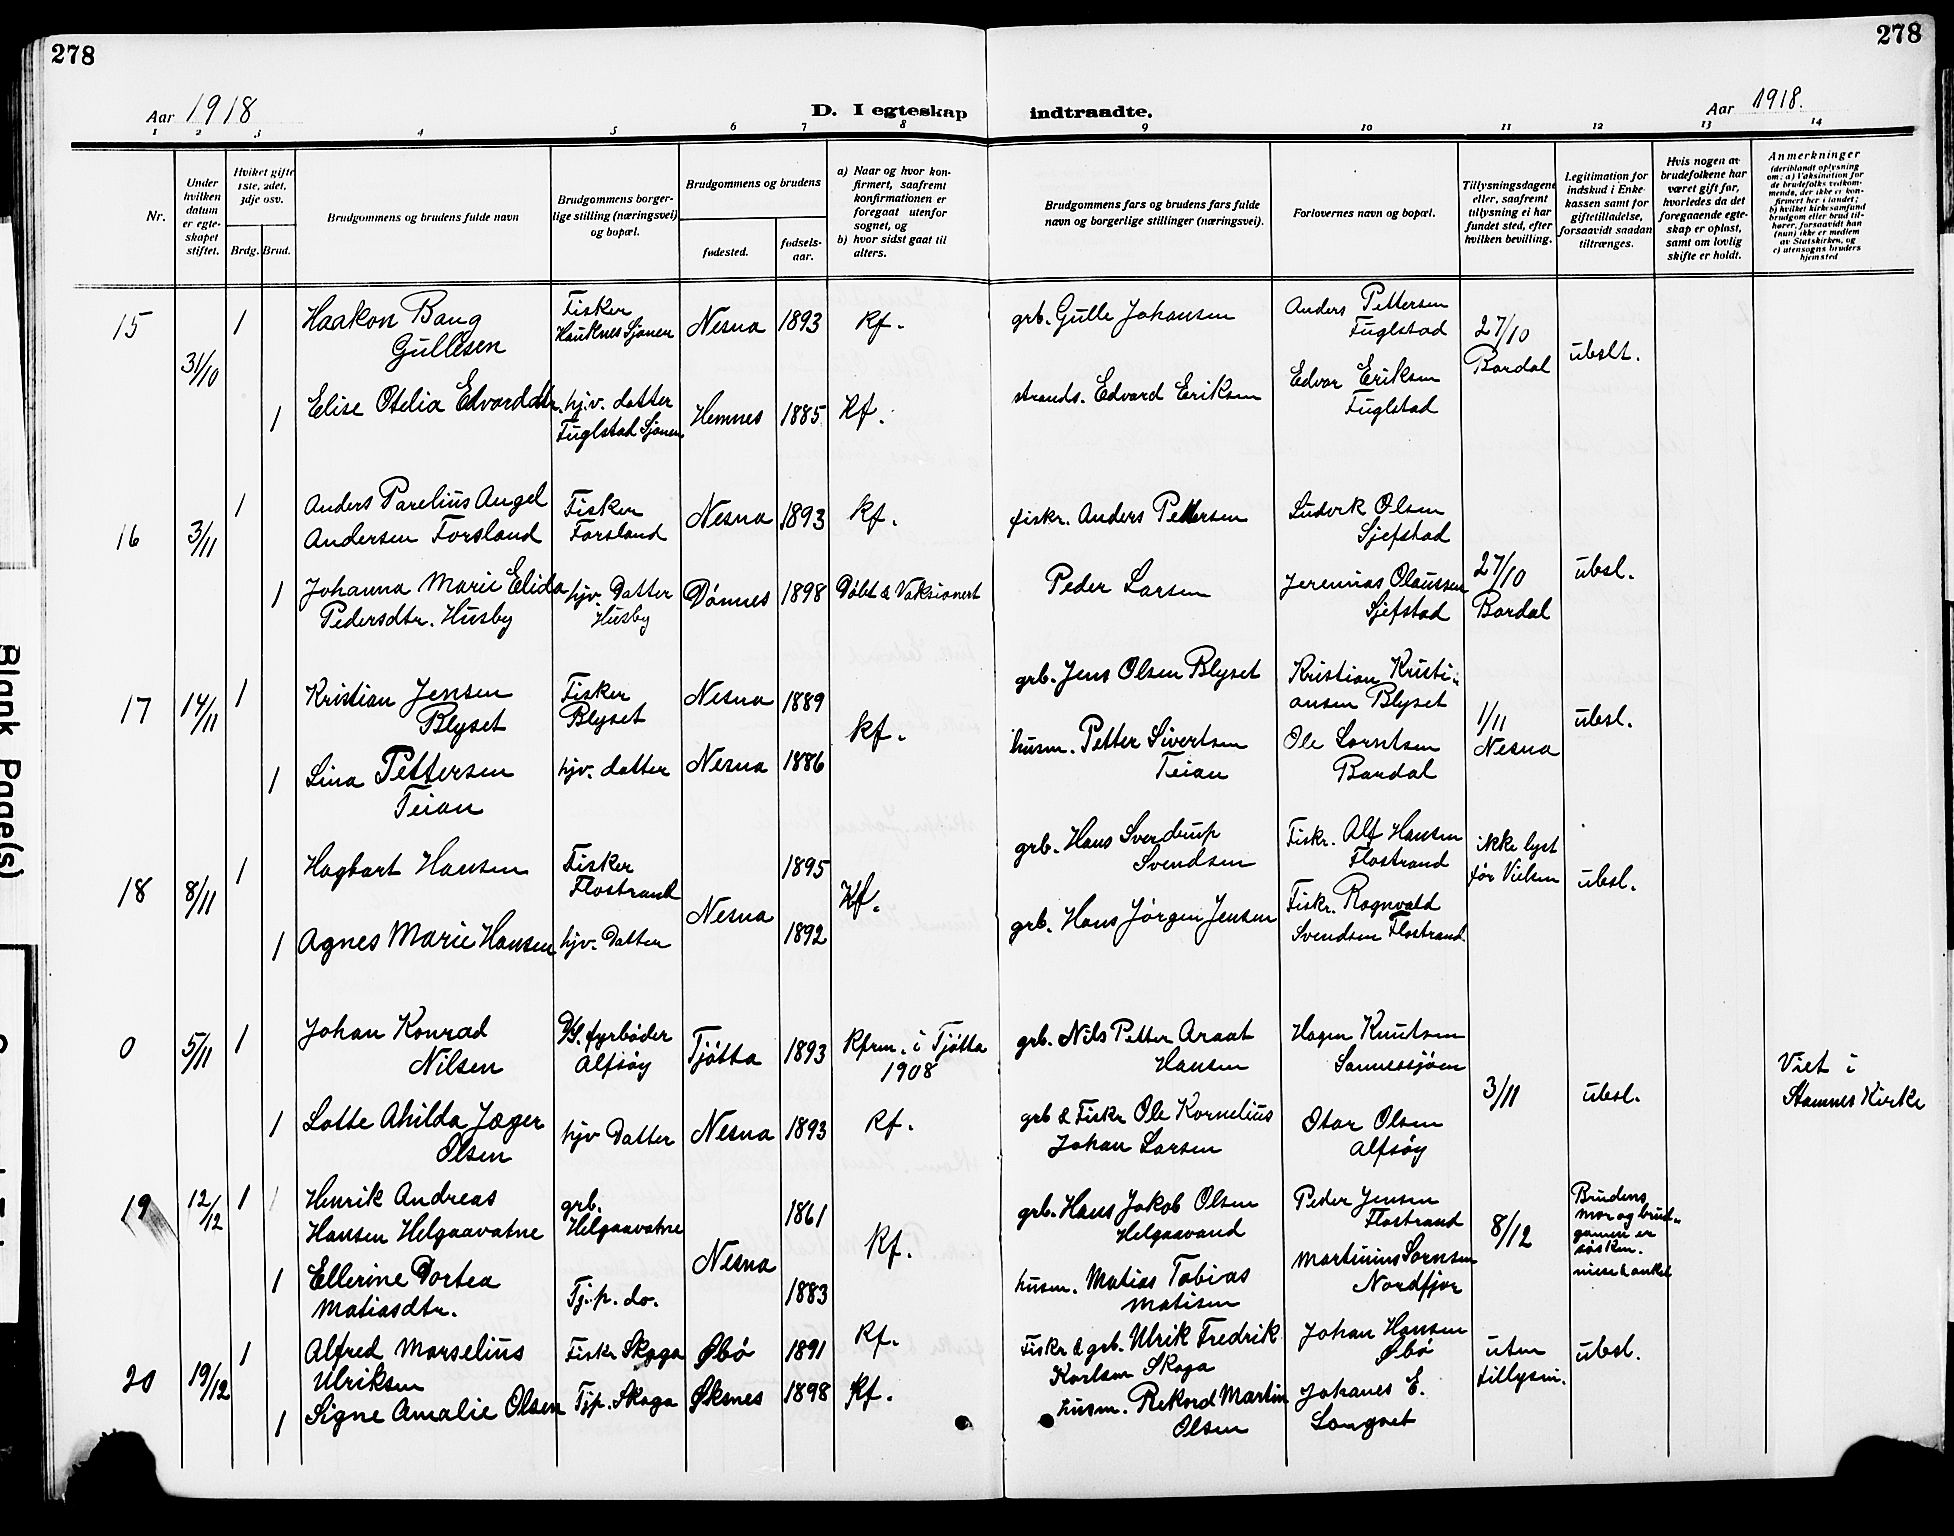 278
278
Aar 1918
D. I egteskap
indtraadte.
Aar 1918.
1 2 3 4 5 6 7 8 9 10 11 12 13 14
Nr.
Under hvilken datum er egteskapet stiftet.
Hvilket gifte 1ste, 2det, 3dje osv.
Brdg. Brud.
Brudgommens og brudens fulde navn
Brudgommens borgerlige stilling (næringsvei) og bopæl.
Brudgommens og brudens
fødested.
fødselsaar.
a) Naar og hvor konfirmert, saafremt konfirmationen er foregaat utenfor sognet, og
b) hvor sidst gaat til alters.
Brudgommens fars og brudens fars fulde navn og borgerlige stillinger (næringsvei).
Forlovernes navn og bopæl.
Tillysningsdagene eller, saafremt tillysning ei har fundet sted, efter hvilken bevilling.
Legitimation for indskud i Enkekassen samt for giftetilladelse, forsaavidt saadan tiltrænges.
Hvis nogen av brudefolkene har været gift før, hvorledes da det foregaaende egteskap er opløst, samt om lovlig skifte er holdt.
Anmerkninger
(deriblandt oplysning om: a) Vaksination for de brudefolks vedkommende, der ikke er konfirmert her i landet; b) hvilket kirkesamfund brudgom eller brud tilhører, forsaavidt han (hun) ikke er medlem av Statskirken, og c) utensogns bruders hjemsted
15 31/10 1 Haakon Bang Gullesen Fisker Hauknes Sjonen Nesna 1893 kf. grb. Gulle Johansen Anders Pettersen Fuglstad 27/10 Bardal ubslt.
1 Elise Otelia Edvardsdtr. hjv. datter Fuglstad Sjonen Hemnes 1885 kf. strands. Edvard Eriksen Edvar Eriksen Fuglstad
16 3/11 1 Anders Parelius Angel Andersen Forsland Fisker Forsland Nesna 1893 kf. fiskr. Anders Pettersen Ludvik Olsen Sjefstad 27/10 Bardal ubsl.
1 Johanna Marie Elida Pedersdtr. Husby hjv. Datter Husby Dønnes 1898 Døbt & Vaksinert Peder Larsen Jeremias Olaussen Sjefstad
17 14/11 1 Kristian Jensen Blyset Fisker Blyset Nesna 1889 kf. grb. Jens Olsen Blyset Kristian Kristiansen Blyset 1/11 Nesna ubsl.
1 Lina Pettersen Teian hjv. datter Nesna 1886 husm. Petter Sivertsen Teian Ole Lorntsen Bardal
18 8/11 1 Hagbart Hansen Fisker Flostrand Nesna 1895 kf. grb. Hans Sverdrup Svendsen Fiskr. Alf Hansen Flostrand ikke lyst før Vielsen ubsl.
1 Agnes Marie Hansen hjv. Datter 1892 grb. Hans Jørgen Jensen Fiskr. Rognvald Svendsen Flostrand.
0 5/11 1 Johan Konrad Nilsen D/S. fyrbøder Alfsøy Tjøtta 1893 Kfrm. i Tjøtta 1908 grb. Nils Petter Araat Hansen Hagen Knutsen Sannessjøen 3/11 ubsl. Viet i Stamnes Kirke
1 Lotte Ahilda Jæger Olsen hjv Datter Nesna 1893 kf. grb & Fiskr Ole Kornelius Johan Larsen Otar Olsen Alfsøy
19 12/12 1 Henrik Andreas Hansen Helgaavatne grb. Helgaavatne Nesna 1861 kf. grb. Hans Jakob Olsen Helgaavand Peder Jensen Flostrand 8/12 Brudens mor og brudgomen er søsken. niese & onkel
1 Ellerine Dortea Matiasdtr. Tj.p. do. 1883 husm. Matias Tobias Matisen Martinius Sornsen Nordfjor
20 19/12 1 Alfred Marselius Ulriksen Fiskr Skaga Øbø 1891 kf. Fiskr & grb. Ulrik Fredrik Karlsen Skaga Johan Hansen Øbø uten tillysin. ubsl.
1 Signe Amalie Olsen Tjp. Skaga Øksnes 1898 kf. husm. Rekord Martin Olsen Johanes E. Langset
Blank Page(s)